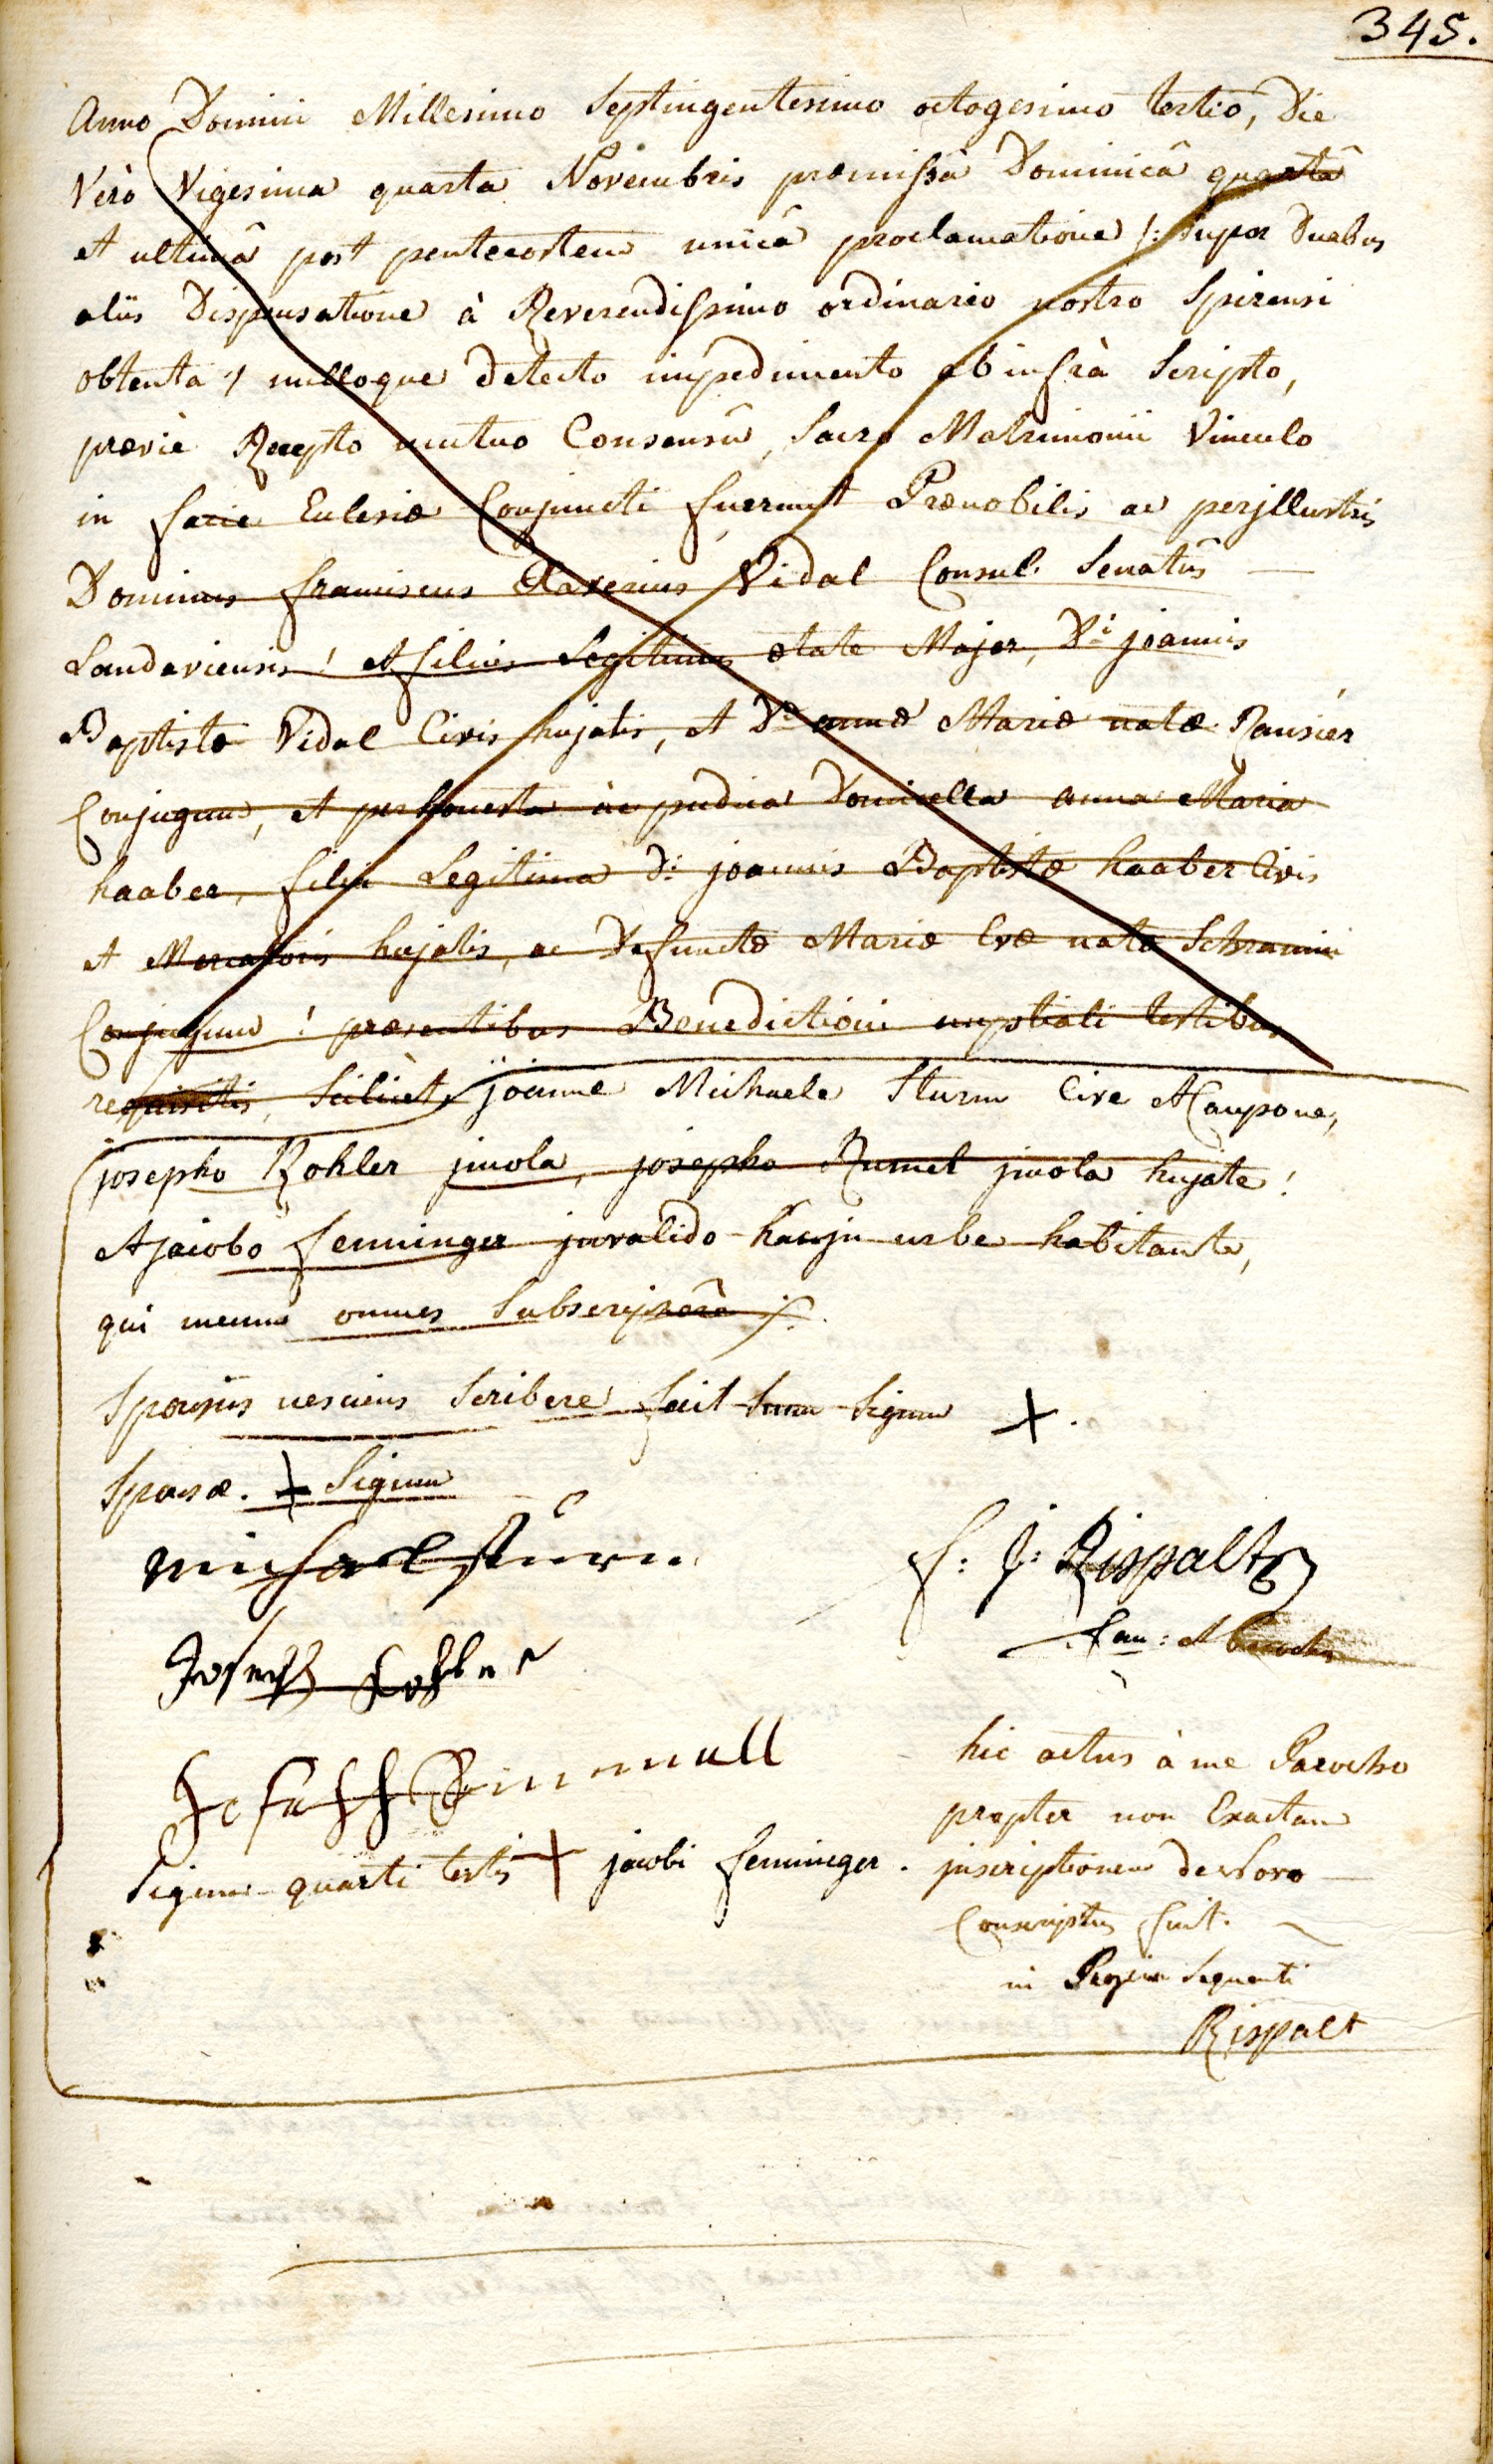 345.
Anno Domini Millesimo Septingentesimo octogesimo tertio, Die
Verò Vigesima quarta Novembris præmissâ Dominicâ quartâ
et ultimâ post pentecosten unicâ proclamatione /: super Duabus
aliis Dispensatione à Reverendissimo ordinario nostro Spirensi
obtenta :/ nulloque detecto impedimento ab infrà Scripto,
prævie Recepto mutuo Consensû, Sacro Matrimonii Vinculo
in facie Eclesiæ Conjuncti fuerunt Prænobilis ac perjllustris
Dominus franciscus Xaverius Vidal Consul. Senatûs
Landaviensis! et filius Legitimus ætate Major, Di joannis
Baptistæ Vidal Civis hujatis, et Dæ annæ Mariæ natæ Rausier
Conjugum, et perhonesta ac pudica Domicella anna Maria
haaber, filia Legitima D: joannis Baptistæ haaber Civis
et Mercatoris hujatis, ac Defunctæ Mariæ Evæ natæ Schramin
Conjugum! præsentibus Benedictioni nuptiali testibus
requisitis, Scilicèt, joanne Michaele Sturm Cive et Caupone,
josepho Kohler jncola, josepho Rumel jncola hujate!
et jacobo fenninger jnvalido hacju urbe habitante,
qui mecum omnes Subscripserê ꝑ.
Sponsus nescius Scribere fecit Suum Signum +.
Sponsæ. + Signum
michael sturm
f: J: Rispalt
Can: et Parochus
Joseph Kohler
Joseph Rummell
Signum quarti testis + jacobi fenninger.
hic actus à me Parocho
propter non Exactam
jnscriptionem de Novo
Conscriptus fuit.
in Pagina Sequenti
Rispalt